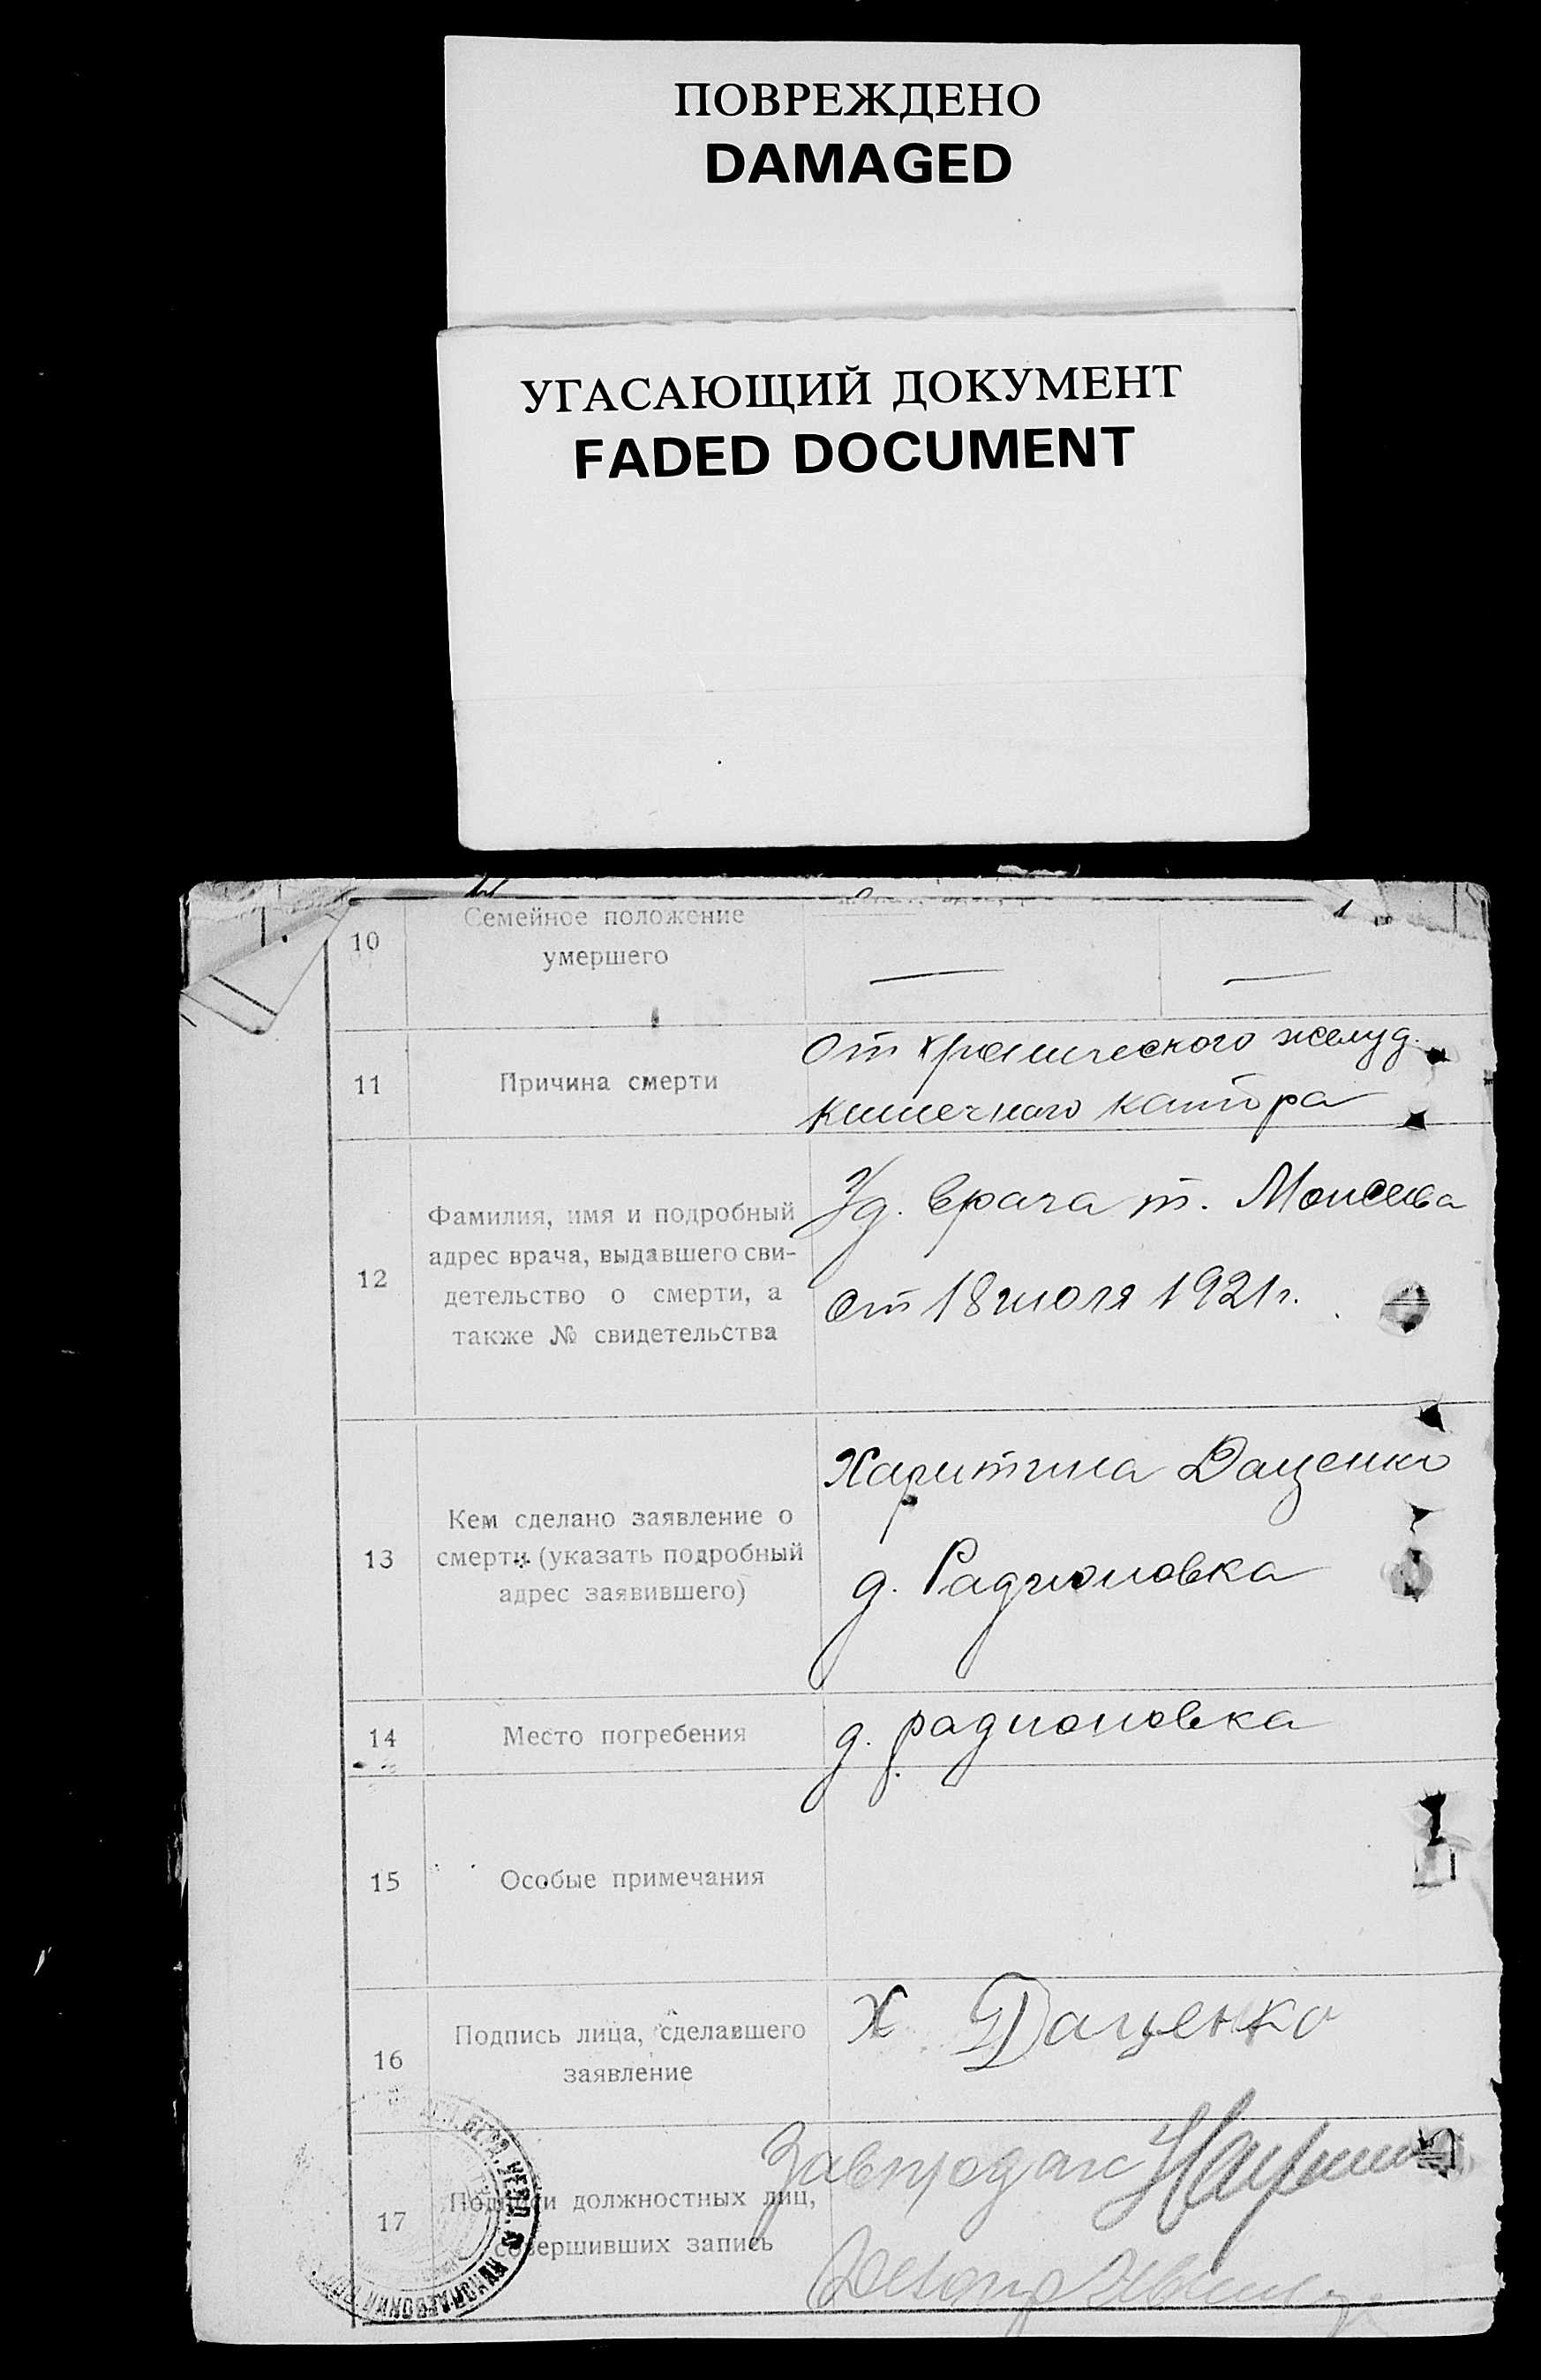 ПОВРЕЖДЕНО
DAMAGED
УГАСАЮЩИЙ ДОКУМЕНТ
FADED DOCUMENT
10
Семейное положение
умершего
— —
11
Причина смерти
От хронического желуд.
кишечного катора
12
Фамилия, имя и подробный
адрес врача, выдавшего сви-
детельство о смерти, а
также № свидетельства
Уд. врача т. Моисеева
от 18 июля 1921 г.
13
Кем сделано заявление о
смерти (указать подробный
адрес заявившего)
Харитина Даценко
д. Радионовка
14
Место погребения
д. радионовка
15
Особые примечания
16
Подпись лица, сделавшего
заявление
Х Даценко
17
Подписи должностных лиц,
совершивших запись